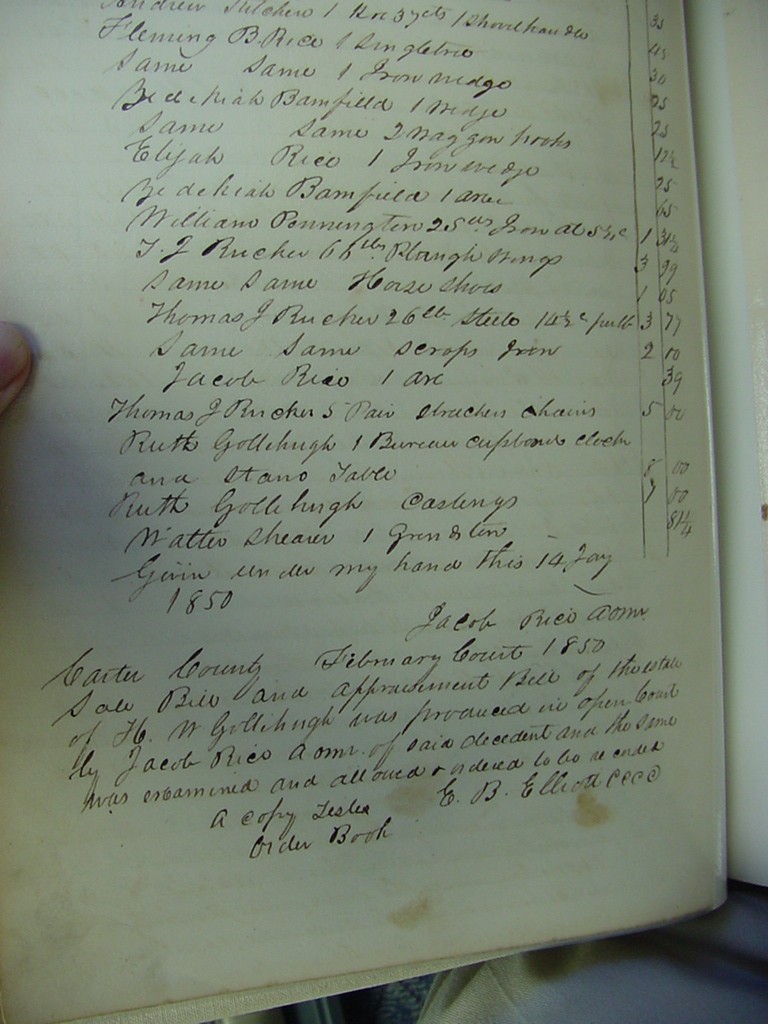 Andrew 1 Hoe 3 1 Shovel handle 35
Fleming B. Rice 1 Singletree 45
Same Same 1 Iron wedge 30
Zedekiah Bamfield 1 wedge 25
Same Same 2 Waggon hooks 25
Elijah Rice 1 Iron wedge 12½
Zedekiah Bamfield 1 axe 25
65
William Pennington 25 lbs Iron at 5¼ c 1 31¼
T. J Rucker 66 lbs Plough wings 3 99
Same Same Horse Shoes 1 05
Thomas J Rucker 26 lb Steele 14½ c 3 77
Same Same scraps Iron 2 10
Jacob Rice 1 axe 39
Thomas J Rucker 5 Pair chains 5 00
Ruth Gollihugh 1 Bureau cupboard clock
and Stand Table 8 00
Ruth Gollihugh Castings 7 00
Walter Shearer 1 Grindston 81¼
Givin under my hand this 14 Jay
1850
Jacob Rice admr.
Carter County February Court 1850
Sale Bill and appraisment Bill of the estate
of H. W Gollihugh was produced in open Court
by Jacob Rice admr. of said decedent and the same
was examined and allowed & ordered to be recorded
a copy Teste E. B. Elliott CCCC
Order Book